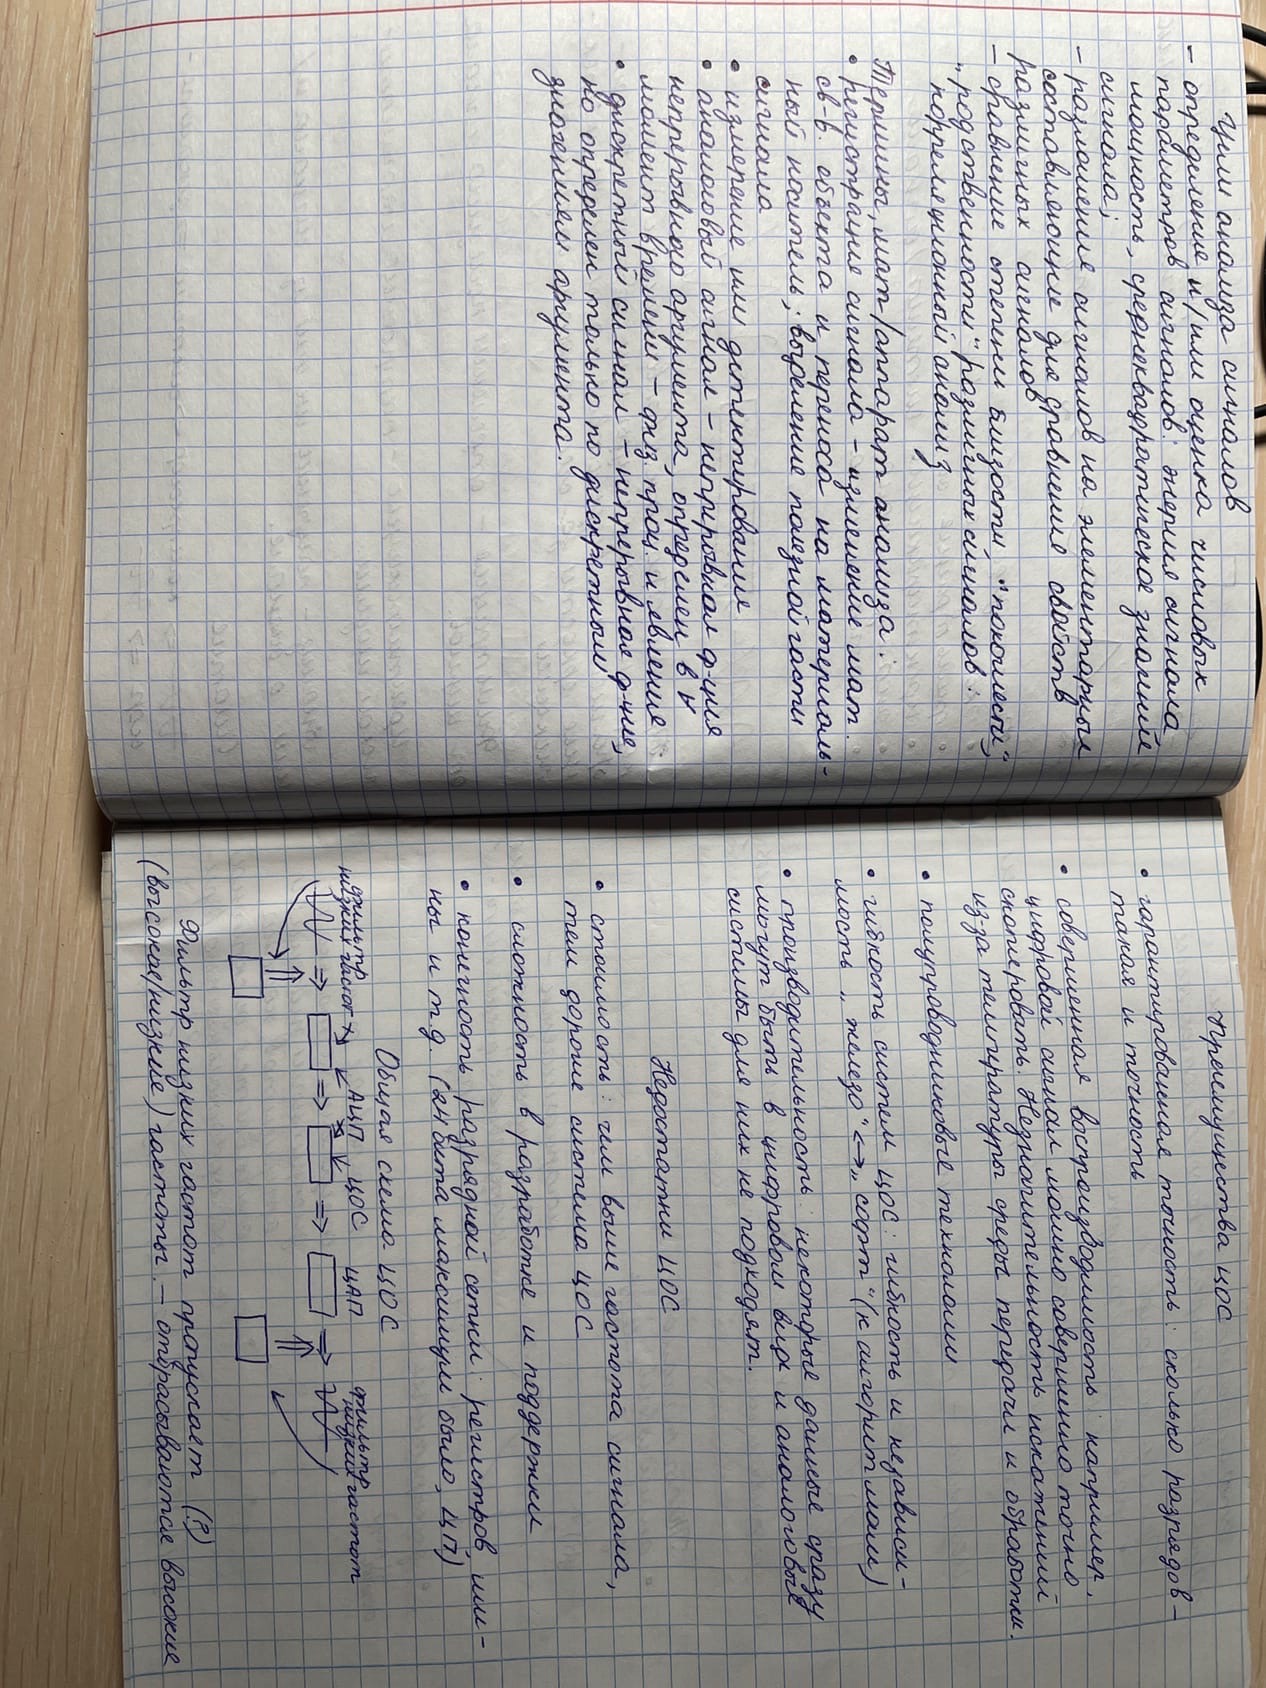 Цели анализа сигналов
– определение и/или оценка числовых
параметров сигналов: энергия сигнала,
мощность, среднеквадратическое значение
сигнала;
– разложение сигналов на элементарные
составляющие для сравнения свойств
различных сигналов
– сравнение степени близости, "похожести",
„родственности" различных сигналов:
корреляционный анализ
Термины, мат/аппарат анализа:
• регистрация сигнала – изменение мат.
св-в. объекта и переноса на материаль-
ный носитель; выделение полезной части
сигнала
• измерение или детектирование
• аналоговый сигнал – непрерывная ф-ция
непрерывного аргумента, определен в ∀
момент времени – физ. проц. и явления
• дискретный сигнал – непрерывная ф-ция,
но определен только по дискретным
значениям аргумента.
Преимущества ЦОС
• гарантированная точность: сколько разрядов –
такая и точность
• совершенная воспроизводимость: например,
цифровой сигнал можно совершенно точно
скопировать. Незначительность искажений
из-за температуры среды передачи и обработки.
• полупроводниковые технологии
• гибкость систем ЦОС: гибкость и независи-
мость „железо" ↔ „софт" (к алгоритмам)
• производительность: некоторые данные сразу
могут быть в цифровом виде и аналоговые
системы для них не подходят.
Недостатки ЦОС
• стоимость: чем выше частота сигнала,
тем дороже система ЦОС
• сложность в разработке и поддержки
• конечность разрядной сетки: регистров, ши-
ны и т.д. (24 бита максимум было, ЦП)
Общая схема ЦОС
фильтр
низких частот
АЦП ЦОС ЦАП
фильтр
низких частот
Фильтр низких частот пропускает (?)
(высокие/низкие) частоты. – отбрасываются высокие